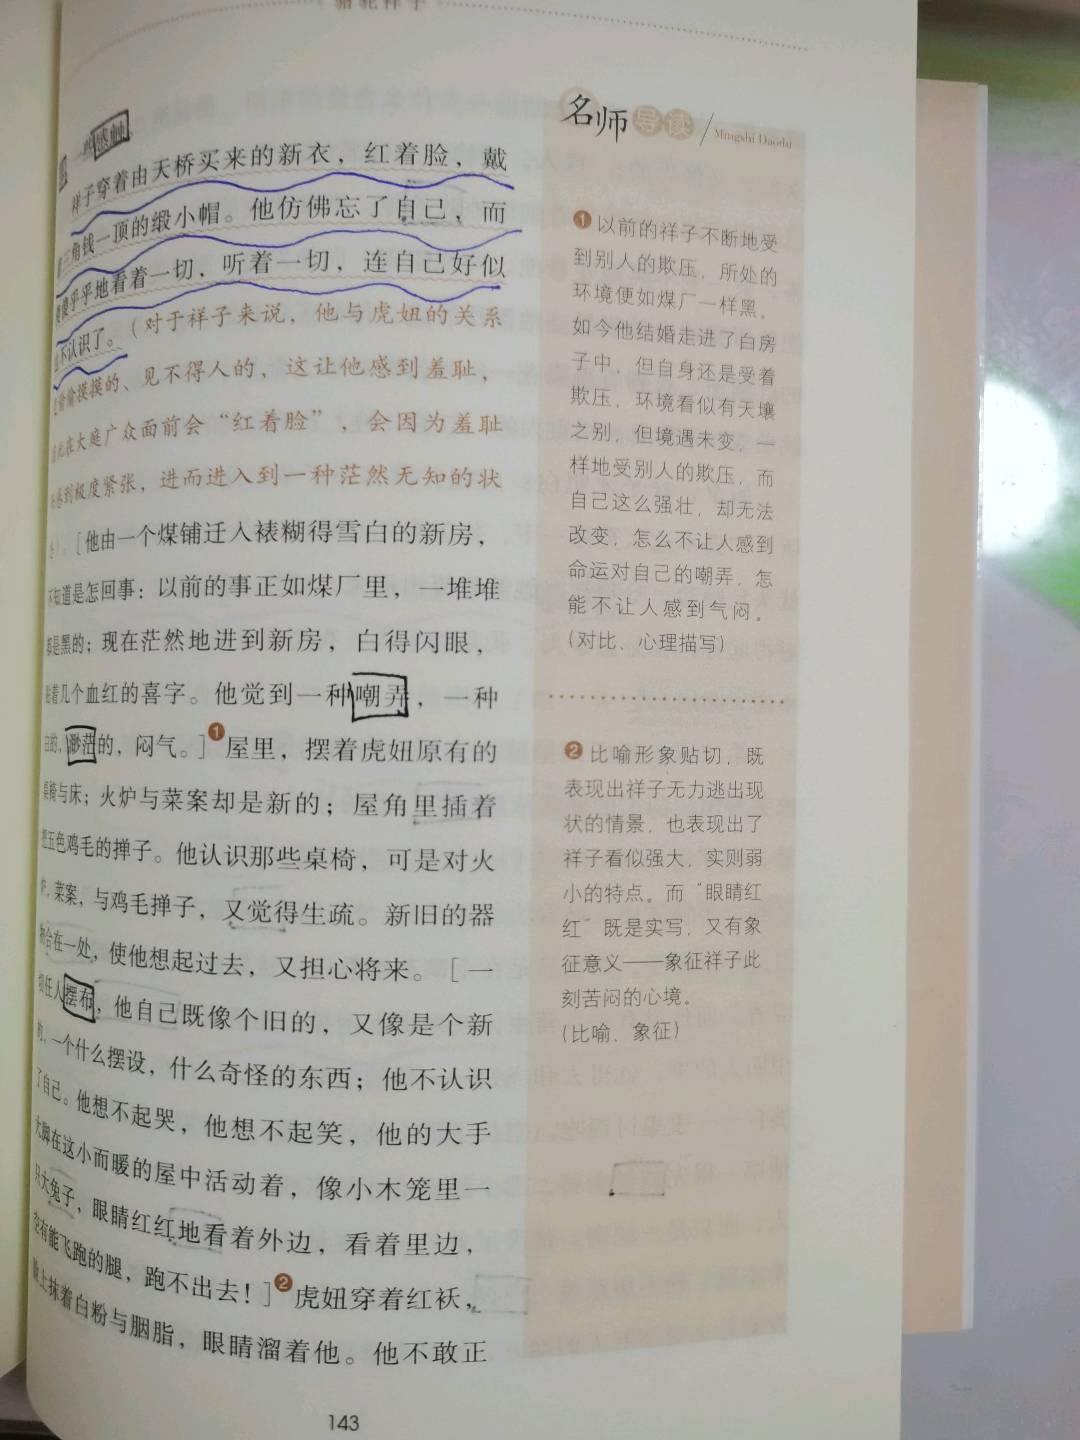 骆驼祥子
感触
祥子穿着由天桥买来的新衣，红着脸，戴
三角钱一顶的缎小帽。他仿佛忘了自己，而
傻乎乎地看着一切，听着一切，连自己好似
不认识了。（对于祥子来说，他与虎妞的关系
偷偷摸摸的、见不得人的，这让他感到羞耻，
此在大庭广众面前会“红着脸”，会因为羞耻
感到极度紧张，进而进入到一种茫然无知的状
）。[他由一个煤铺迁入裱糊得雪白的新房，
不知道是怎回事：以前的事正如煤厂里，一堆堆
都是黑的；现在茫然地进到新房，白得闪眼，
贴着几个血红的喜字。他觉到一种嘲弄，一种
白的，渺茫的，闷气。]❶屋里，摆着虎妞原有的
桌椅与床；火炉与菜案却是新的；屋角里插着
把五色鸡毛的掸子。他认识那些桌椅，可是对火
炉，菜案，与鸡毛掸子，又觉得生疏。新旧的器
物合在一处，使他想起过去，又担心将来。[一
切任人摆布，他自己既像个旧的，又像是个新
的，一个什么摆设，什么奇怪的东西；他不认识
了自己。他想不起哭，他想不起笑，他的大手
大脚在这小而暖的屋中活动着，像小木笼里一
只大兔子，眼睛红红地看着外边，看着里边，
空有能飞跑的腿，跑不出去！]❷虎妞穿着红袄，
脸上抹着白粉与胭脂，眼睛溜着他。他不敢正
143
名师导读 / Mingshi Daodu
❶以前的祥子不断地受
到别人的欺压，所处的
环境便如煤厂一样黑，
如今他结婚走进了白房
子中，但自身还是受着
欺压，环境看似有天壤
之别，但境遇未变，一
样地受别人的欺压，而
自己这么强壮，却无法
改变，怎么不让人感到
命运对自己的嘲弄，怎
能不让人感到气闷。
(对比、心理描写)
❷比喻形象贴切，既
表现出祥子无力逃出现
状的情景，也表现出了
祥子看似强大，实则弱
小的特点。而“眼睛红
红”既是实写，又有象
征意义——象征祥子此
刻苦闷的心境。
(比喻、象征)